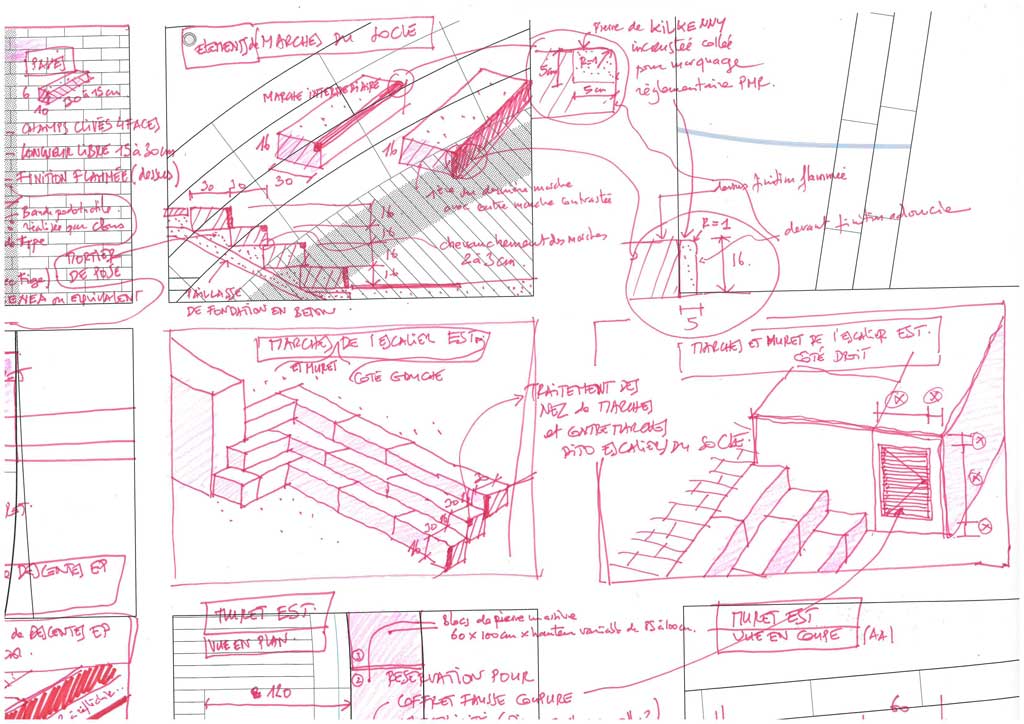 PAVÉ
6
10
30 à 15cm
CHAMPS CLIVÉS 4 FACES
LONGUEUR LIBRE 15 à 30cm
FINITION FLAMMÉE (dessus)
Bande podotactile
réalisée par clous
de type
MORTIER
DE POSE
ENEA ou EQUIVALENT
ELEMENTS de MARCHES DU SOCLE
MARCHE INTERMEDIAIRE
16
30
16
30
30
16
16
16
1ère ou dernière marche
avec contre marche contrastée
chevauchement des marches
2 à 3 cm
PAILLASSE
DE FONDATION EN BETON
Pierre de KILKENNY
incrustée collée
pour marquage
règlementaire PMR.
5cm
R=1
5cm
dessus finition flammée
devant finition adoucie
R=1
16.
5
MARCHES DE L'ESCALIER EST
et MURET
COTÉ GAUCHE
30
30
30
16
16
TRAITEMENT DES
NEZ de MARCHES
et CONTREMARCHES
DITO ESCALIERS DU SOCLE.
MARCHES ET MURET DE L'ESCALIER EST.
COTÉ DROIT
DESCENTES EP
de DESCENTES EP
MURET EST.
VUE EN PLAN.
120
1
2
Blocs de pierre massive
60 x 100cm x hauteur variable de 85 à 100cm.
RESERVATION POUR
COFFRET FAUSSE COUPURE
MURET EST
VUE EN COUPE (AA)
60